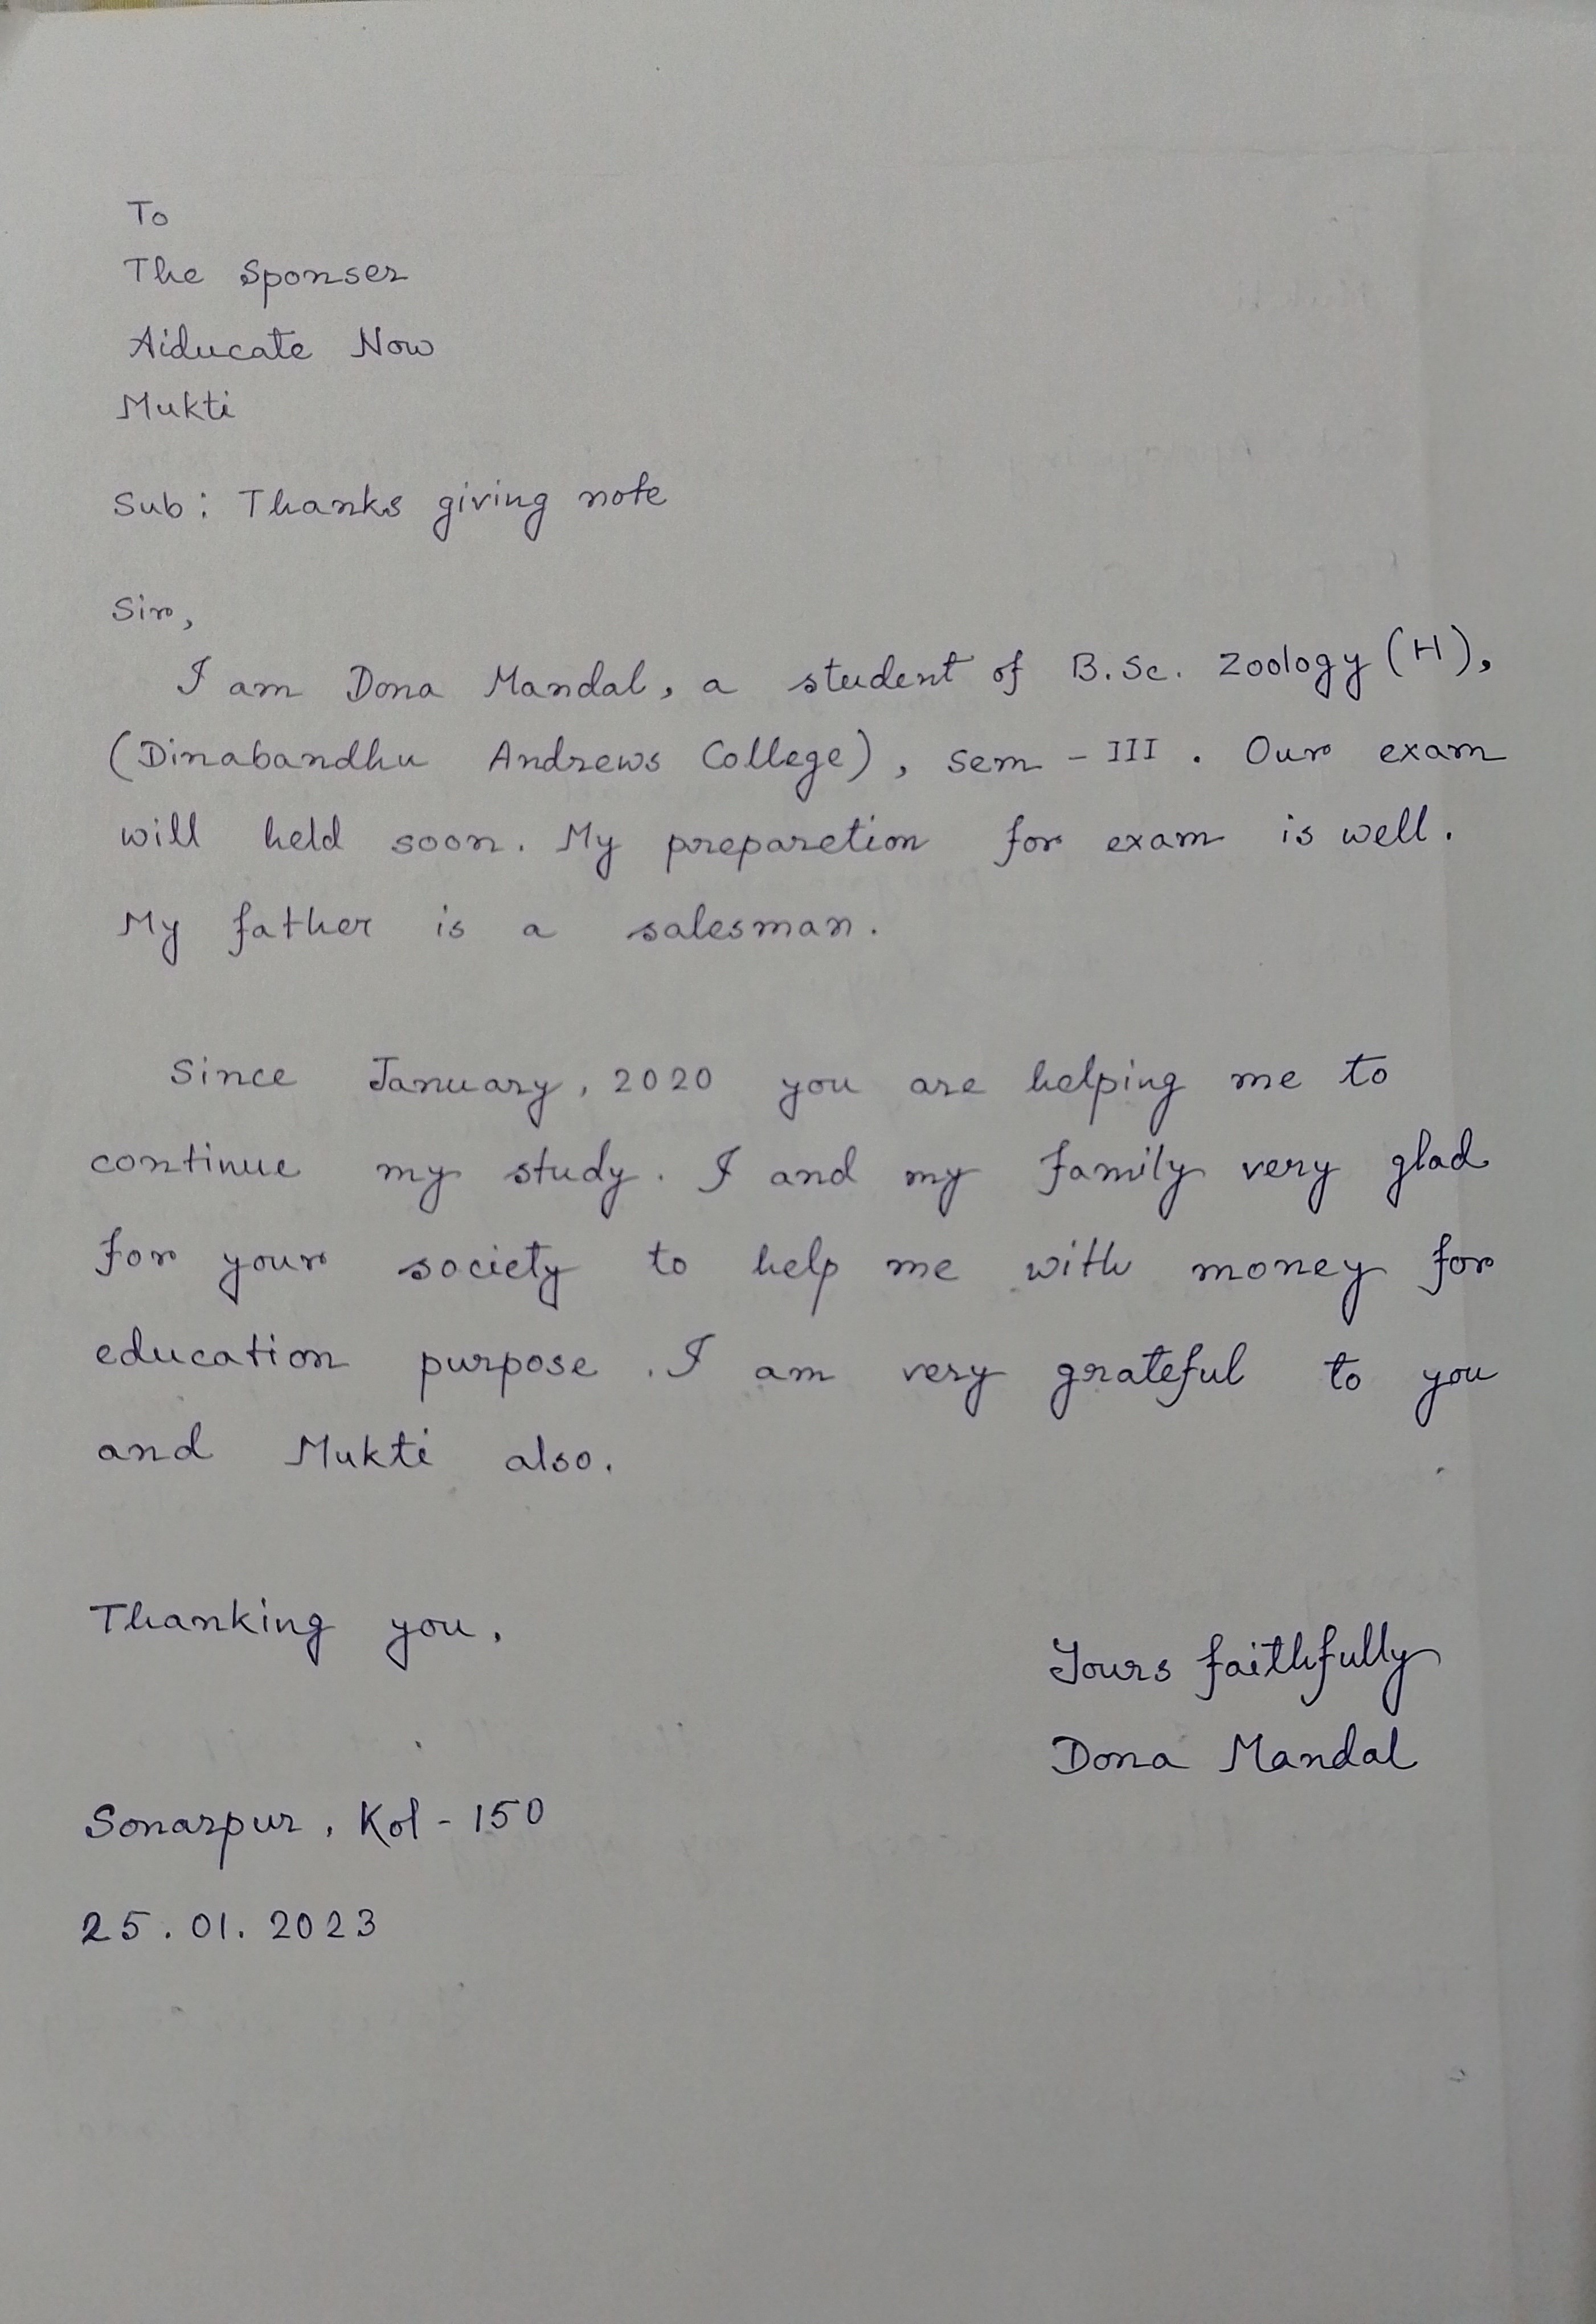 To
The Sponser
Aiducate Now
Mukti
Sub: Thanks giving note
Sir,
I am Dona Mandal, a student of B.Sc. Zoology (H),
(Dinabandhu Andrews College), Sem - III. Our exam
will held soon. My preparetion for exam is well.
My father is a salesman.
Since January, 2020 you are helping me to
continue my study. I and my family very glad
for your society to help me with money for
education purpose. I am very grateful to you
and Mukti also.
Thanking you,
Yours faithfully
Dona Mandal
Sonarpur, Kol - 150
25.01.2023